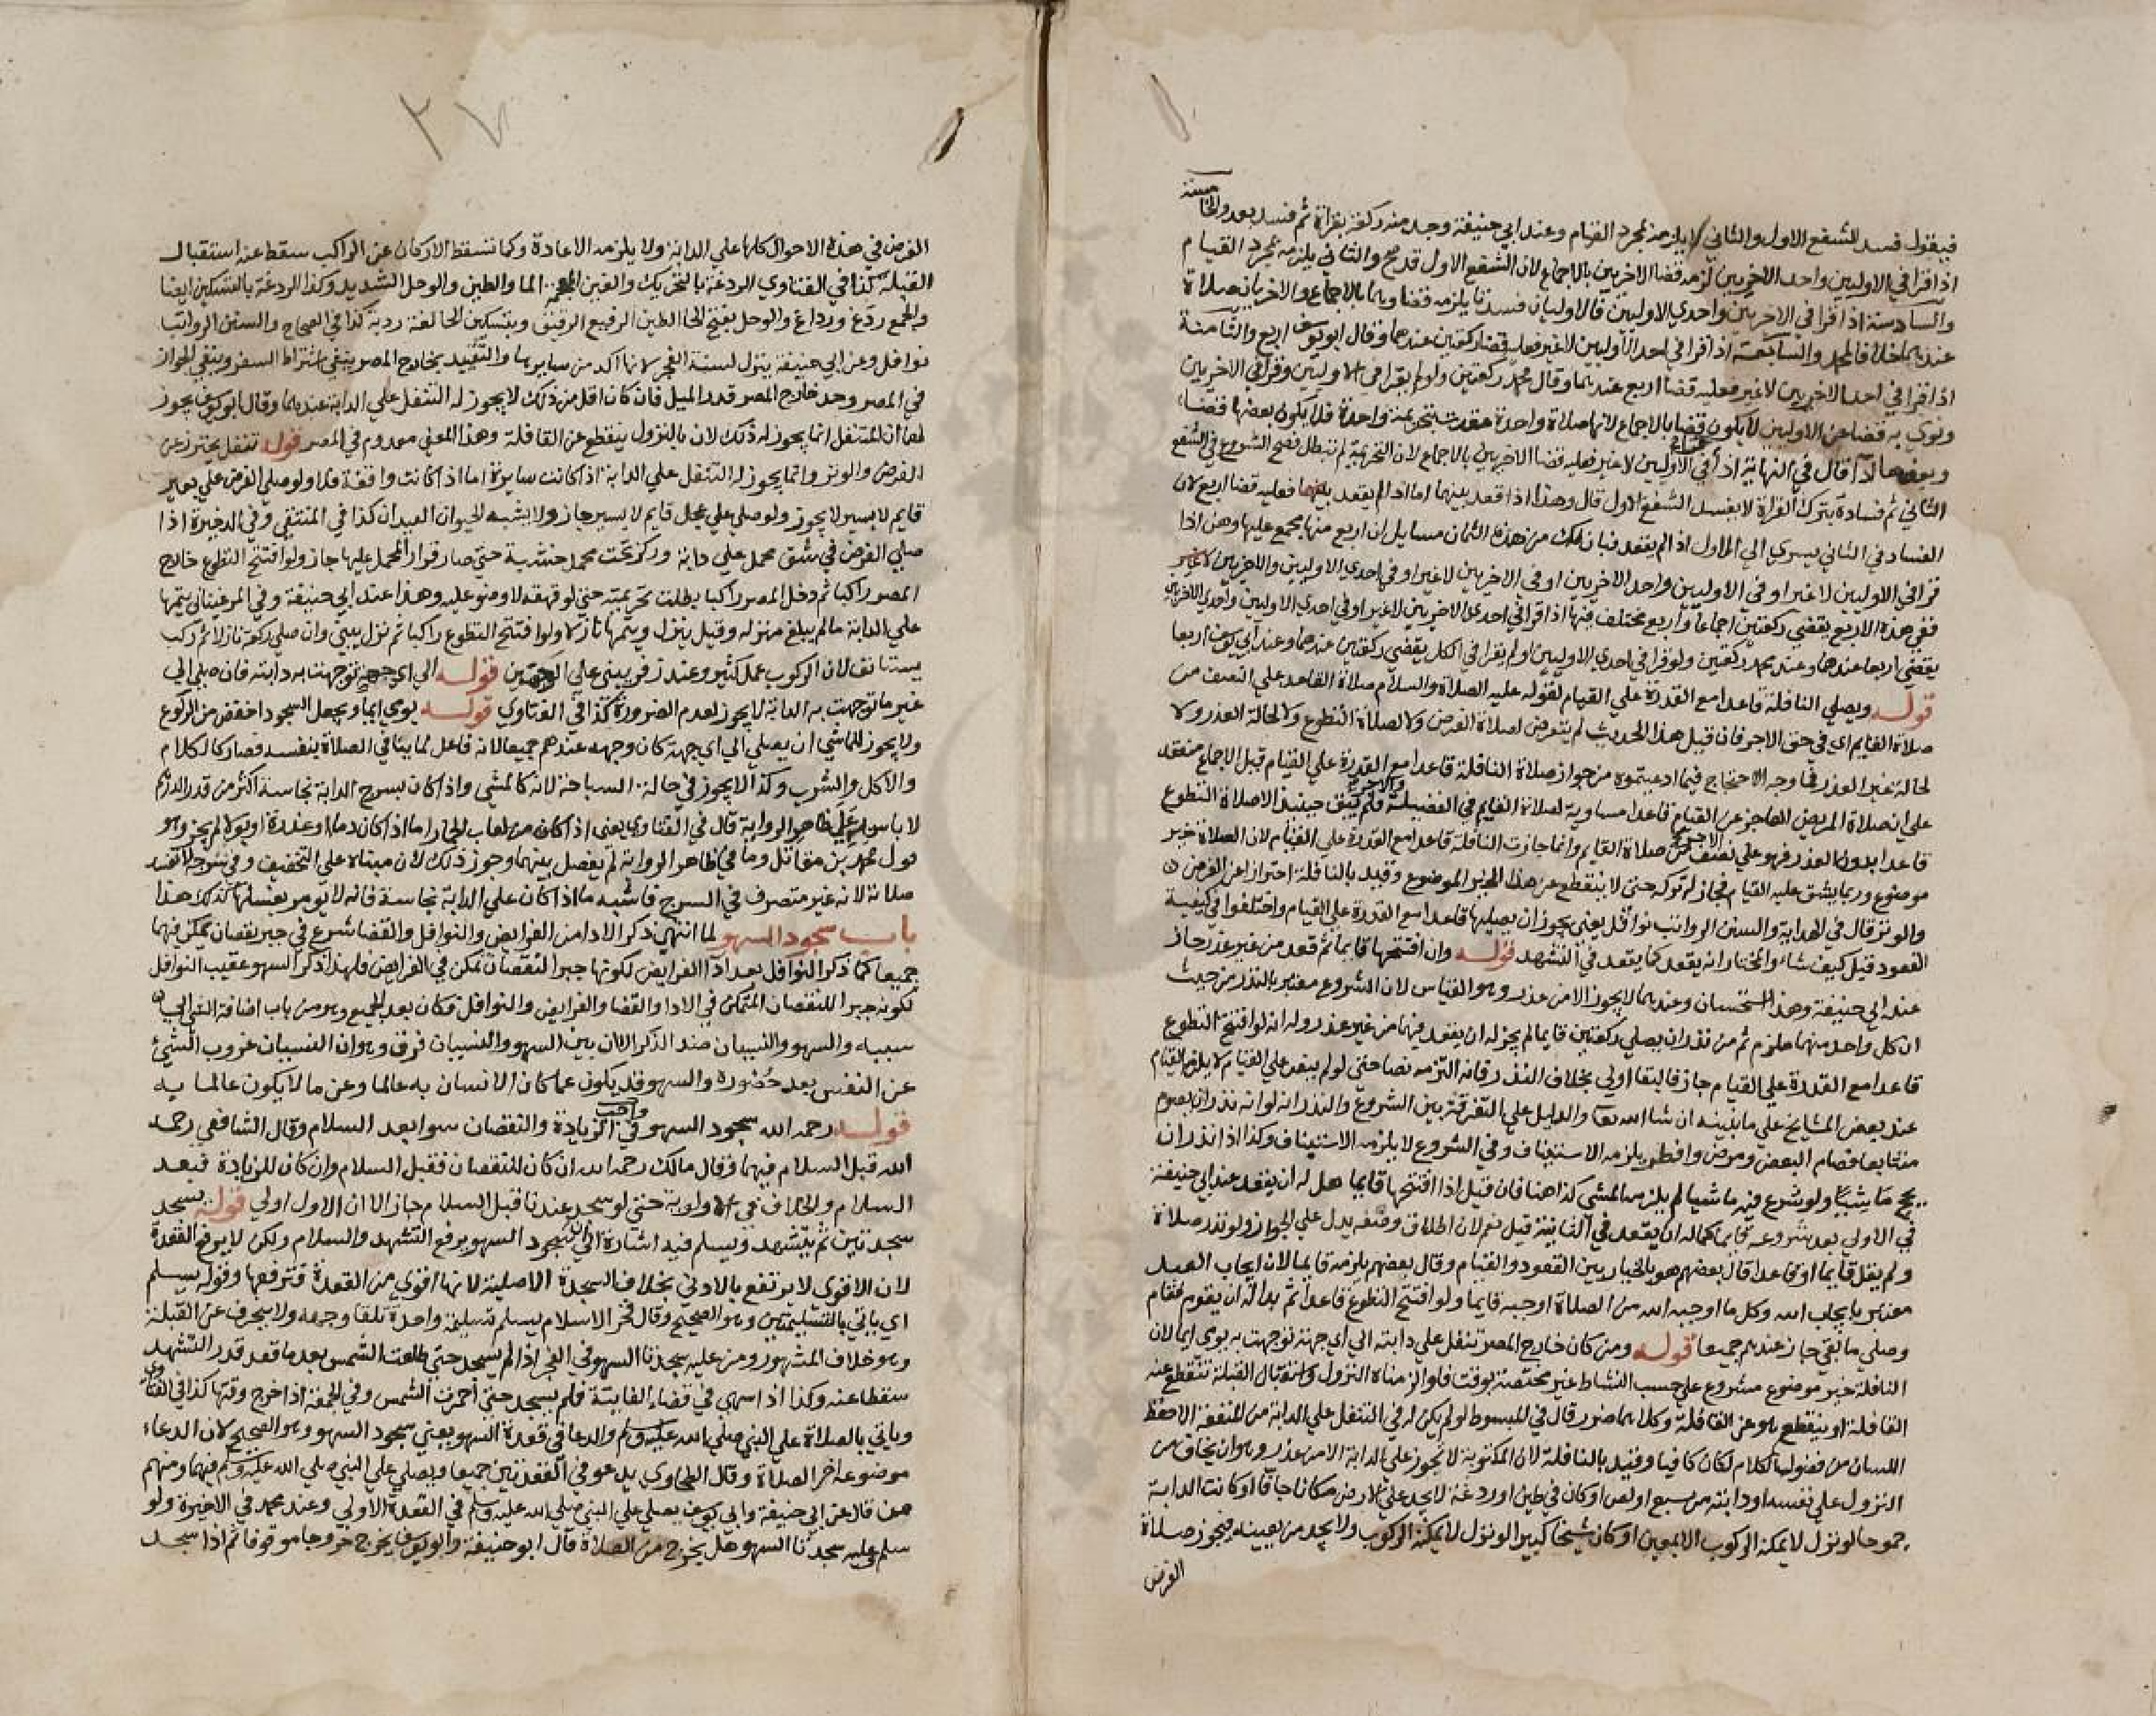 فيقول فسد الشفع الاول والثاني لا يلزمه بمجرد القيام وعند ابي حنيفة وجد منه ركعة بقراة ثم فسد بعد والخامسة
اذا قرا في الاوليين واحد الاخريين لزمه قضا الاخريين بالاجماع لان الشفع الاول قد صح والثاني يلزمه بمجرد القيام
والسادسة اذا قرا في الاخريين واحدي الاوليين فالاوليان فسدتا يلزمه قضاوهما بالاجماع والاخريان صلاة
عندهما خلافا لمحمد والسابعة اذا قرا في احد الاوليين لا غير فعليه قضا ركعتين عندهما وقال ابو يوسف اربع والثامنة
اذا قرا في احد الاخريين لا غير فعليه قضا اربع عندهما وقال محمد ركعتين ولو لم يقرا في الاوليين وقرا في الاخريين
ونوي به قضا عن الاوليين لا يكون قضا بالاجماع لانها صلاة واحدة عقدت بتحريمة واحدة فلا يكون بعضها قضا
وبعضها ادا قال في النهاية اذا قرا في الاوليين لا غير فعليه قضا الاخريين بالاجماع لان التحريمة لم تبطل فصح الشروع في الشفع
الثاني ثم فساده بترك القراة لا يفسد الشفع الاول قال وهذا اذا قعد بينهما اما اذا لم يقعد بينهما فعليه قضا اربع لان
الفساد في الثاني يسري الي الاول اذا لم يقعد فبان لك من هذه الثمان مسايل ان اربع منها مجمع عليها وهن اذا
قرا في الاوليين لا غير او في الاوليين واحد الاخريين او في الاخريين لا غير او في احدي الاوليين والاخريين لا غير
ففي هذه الاربع يقضي ركعتين اجماعا واربع مختلف فيها اذا قرا في احدي الاخريين لا غير او في احدي الاوليين واحدي الاخريين
يقضي اربعا عندهما وعند محمد ركعتين ولو قرا في احدي الاوليين او لم يقرا في الكل يقضي ركعتين عندهما وعند ابي يوسف اربعا
قوله ويصلي النافلة قاعدا مع القدرة علي القيام لقوله عليه الصلاة والسلام صلاة القاعد علي النصف من
صلاة القايم اي في حق الاجر فان قيل هذا الحديث لم يتعرض لصلاة الفرض ولا لصلاة التطوع ولا لحالة العذر ولا
لحالة غير العذر فما وجه الاحتجاج فيما ادعيتموه من جواز صلاة النافلة قاعدا مع القدرة علي القيام قيل الاجماع منعقد
علي ان صلاة المريض العاجز عن القيام قاعدا مساوية لصلاة القايم في الفضيلة والاجر فلم يبق حينيذ الا صلاة التطوع
قاعدا بدون العذر فهو علي نصف الاجر من صلاة القايم وانما جازت النافلة قاعدا مع القدرة علي القيام لان الصلاة خير
موضوع وربما يشق عليه القيام فجاز له تركه حتي لا ينقطع عن هذا الخير الموضوع وقيد بالنافلة احترازا عن الفرض
والوتر قال في الهداية والسنن الرواتب نوافل يعني يجوز ان يصليها قاعدا مع القدرة علي القيام واختلفوا في كيفية
القعود قيل كيف شاء والمختار انه يقعد كما يقعد في التشهد قوله وان افتتحها قايما ثم قعد من غير عذر جاز
عند ابي حنيفة وهذا استحسان وعندهما لا يجوز الا من عذر وهو القياس لان الشروع معتبر بالنذر من حيث
ان كل واحد منهما ملزم ثم من نذر ان يصلي ركعتين قايما لم يجز له ان يقعد فيهما من غير عذر وله انه لو افتتح التطوع
قاعدا مع القدرة علي القيام جاز فالبقا اولي بخلاف النذر فانه التزمه نصا حتي لو لم ينص علي القيام لا يلزمه القيام
عند بعض المشايخ علي ما نبينه ان شا الله تعا والدليل علي التفرقة بين الشروع والنذر انه لو انه نذر ان يصوم
متتابعا فصام البعض ومرض وافطر يلزمه الاستيناف وفي الشروع لا يلزمه الاستيناف وكذا اذا نذر ان
يحج ماشيا ولو شرع فيه ماشيا لم يلزمه المشي كذا هنا فان قيل اذا افتتحها قايما هل له ان يقعد عند ابي حنيفة
في الاولي بعد شروعه قايما كماله ان يقعد في الثانية قيل نعم لان اطلاق وضعه يدل علي الجواز ولو نذر صلاة
ولم يقل قايما او قاعدا قال بعضهم هو بالخيار بين القعود والقيام وقال بعضهم يلزمه قايما لان ايجاب العبد
معتبر بايجاب الله وكل ما اوجبه الله من الصلاة اوجبه قايما ولو افتتح التطوع قاعدا ثم بدا له ان يقوم فقام
وصلي ما بقي جاز عندهم جميعا قوله ومن كان خارج المصر تنفل علي دابته الي اي جهة توجهت به يومي ايما لان
النافلة خير موضوع مشروع علي حسب النشاط غير مختصة بوقت فلو الزمناه النزول واستقبال القبلة تنقطع عنه
القافلة او ينقطع هو عن القافلة وكلاهما ضرر قال في المبسوط لو لم يكن له في التنفل علي الدابة من المنفعة الا حفظ
اللسان من فضول الكلام لكان كافيا وقيد بالنافلة لان المكتوبة لا تجوز علي الدابة الا من عذر وهو ان يخاف من
النزول علي نفسه او دابته من سبع او لص او كان في طين او ردغة لا يجد علي الارض مكانا جافا او كانت الدابة
جموحا لو نزل لا يمكنه الركوب الا بمعين او كان شيخا كبيرا لو نزل لا يمكنه الركوب ولا يجد من يعينه فتجوز صلاة
الفرض
الفرض في هذه الاحوال كلها علي الدابة ولا يلزمه الاعادة وكما تسقط الاركان عن الراكب سقط عنه استقبال
القبلة كذا في الفتاوي الردغة بالتحريك والغين المعجمة الما والطين والوحل الشديد وكذا الردغة بالتسكين ايضا
والجمع ردغ ورداغ والوحل بفتح الحا الطين الرقيق وبتسكين الحا لغة ردية كذا في الصحاح والسنن الرواتب
نوافل وعن ابي حنيفة ينزل لسنة الفجر لانها اكد من سايرها والتقييد بخارج المصر ينفي اشتراط السفر وينفي الجواز
في المصر وحد خارج المصر قدر الميل فان كان اقل من ذلك لا يجوز له التنفل علي الدابة عندهما وقال ابو يوسف يجوز
لهما ان المتنفل انما يجوز له ذلك لان بالنزول ينقطع عن القافلة وهذا المعني معدوم في المصر قوله تنفل يحترز عن
الفرض والوتر وانما يجوز له التنفل علي الدابة اذا كانت سايرة اما اذا كانت واقفة فلا ولو صلي الفرض علي بعير
قايم لا يسير لا يجوز ولو صلي علي عجل قايم لا يسير جاز ولا يشبه الحيوان العيدان كذا في المنتقي وفي الذخيرة اذا
صلي الفرض في شق محمل علي دابة وركز تحت محمل خشبة حتي صار قرار المحمل عليها جاز ولو افتتح التطوع خارج
المصر راكبا ثم دخل المصر راكبا بطلت تحريمته حتي لو قهقه لا وضو عليه وهذا عند ابي حنيفة وفي المرغيناني يتمها
علي الدابة ما لم يبلغ منزله وقيل ينزل ويتمها نازلا ولو افتتح التطوع راكبا ثم نزل يبني وان صلي ركعة نازلا ثم ركب
يستانف لان الركوب عمل كثير وعند زفر يبني علي الوجهين قوله الي اي جهة توجهت به دابته فان صلي الي
غير ما توجهت به الدابة لا يجوز لعدم الضرورة كذا في الفتاوي قوله يومي ايما ويجعل السجود اخفض من الركوع
ولا يجوز للماشي ان يصلي الي اي جهة كان وجهه عندهم جميعا لانه فاعل لما ينافي الصلاة بنفسه فصار كالكلام
والاكل والشرب وكذا لا يجوز في حالة السباحة لانه كالمشي واذا كان بسرج الدابة نجاسة اكثر من قدر الدرهم
لا باس به علي ظاهر الرواية قال في الفتاوي يعني اذا كان من لعاب الحمار اما اذا كان دما او عذرة او بولا لم يجز وهو
قول محمد بن مقاتل وما في ظاهر الرواية لم يفصل بينهما وجوز ذلك لان مبناه علي التخفيف وفي شرحه لا تفسد
صلاته لانه غير متصرف في السرج فاشبه ما اذا كان علي الدابة نجاسة فانه لا يومر بغسلها كذلك هذا
باب سجود السهو لما انتهي ذكر الادا من الفرايض والنوافل والقضا شرع في جبر نقصان تمكن فيهما
جميعا كما ذكر النوافل بعد ادا الفرايض لكونها جبرا لنقصان تمكن في الفرايض فلهذا ذكر السهو عقيب النوافل
لكونه جبرا للنقصان المتمكن في الادا والقضا والفرايض والنوافل فكان بعد الجميع وهو من باب اضافة الشي الي
سببه والسهو والنسيان ضد الذكر الا ان بين السهو والنسيان فرق وهو ان النسيان غروب الشيء
عن النفس بعد حضوره والسهو قد يكون عما كان الانسان به عالما وعن ما لا يكون عالما به
قوله رحمه الله سجود السهو واجب في الزيادة والنقصان سوا بعد السلام وقال الشافعي رحمه
الله قبل السلام فيهما وقال مالك رحمه الله ان كان للنقصان فقبل السلام وان كان للزيادة فبعد
السلام والخلاف في الاولوية حتي لو سجد عندنا قبل السلام جاز الا ان الاول اولي قوله يسجد
سجدتين ثم يتشهد ويسلم فيه اشارة الي ان سجود السهو يرفع التشهد والسلام ولكن لا يرفع القعدة
لان الاقوي لا يرتفع بالادني بخلاف السجدة الاصلية لانها اقوي من القعدة فترفعها وقوله يسلم
اي ياتي بالتسليمتين وهو الصحيح وقال فخر الاسلام يسلم تسليمة واحدة تلقا وجهه ولا ينحرف عن القبلة
وهو خلاف المشهور ومن عليه سجدتا السهو في الفجر اذا لم يسجد حتي طلعت الشمس بعد ما قعد قدر التشهد
سقطا عنه وكذا اذا سهي في قضاء الفايتة فلم يسجد حتي احمرت الشمس وفي الجمعة اذا خرج وقتها كذا في الفتاوي
وياتي بالصلاة علي النبي صلي الله عليه وسلم والدعا في قعدة السهو يعني سجود السهو وهو الصحيح لان الدعاء
موضوعه اخر الصلاة وقال الطحاوي يدعو في القعدتين جميعا ويصلي علي النبي صلي الله عليه وسلم فيهما ومنهم
من قال عن ابي حنيفة وابي يوسف يصلي علي النبي صلي الله عليه وسلم في القعدة الاولي وعند محمد في الاخيرة ولو
سلم وعليه سجدتا السهو هل يخرج من الصلاة قال ابو حنيفة وابو يوسف يخرج خروجا موقوفا ثم اذا سجد